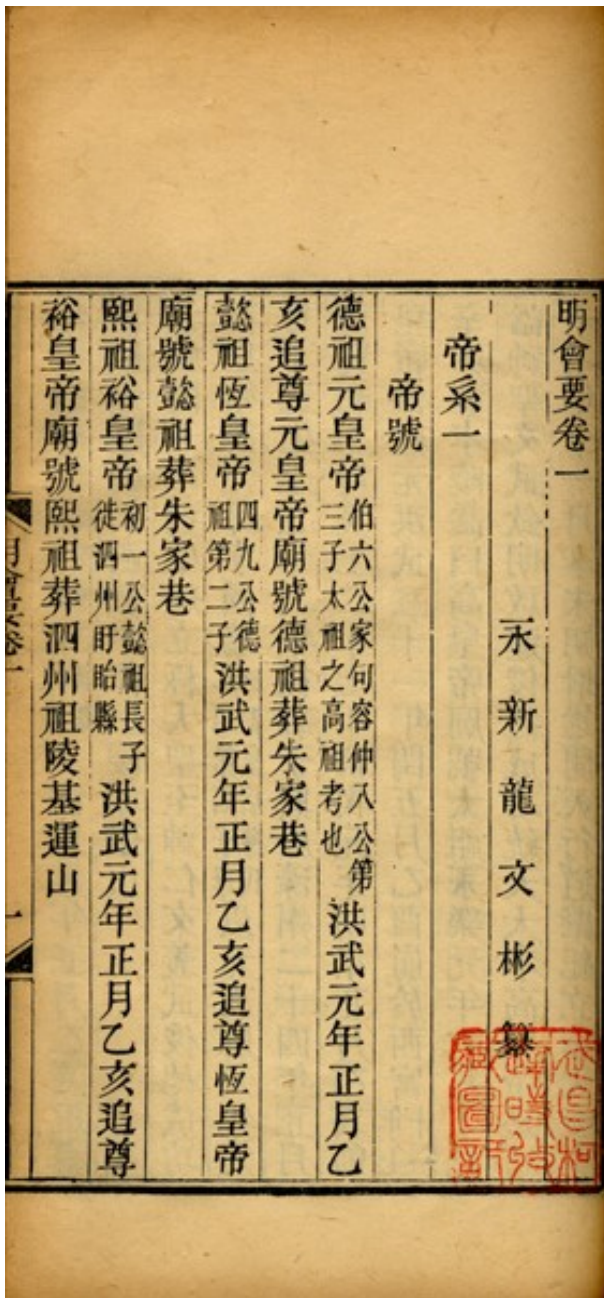 明會要卷一
永新龍文彬纂
帝系一
帝號
德祖元皇帝伯六公家句容仲八公第三子太祖之高祖考也洪武元年正月乙
亥追尊元皇帝廟號德祖葬朱家巷
懿祖恆皇帝四九公德祖第二子洪武元年正月乙亥追尊恆皇帝
廟號懿祖葬朱家巷
熙祖裕皇帝初一公懿祖長子徙泗州盱眙縣洪武元年正月乙亥追尊
裕皇帝廟號熙祖葬泗州祖陵基運山
明會要卷一
一